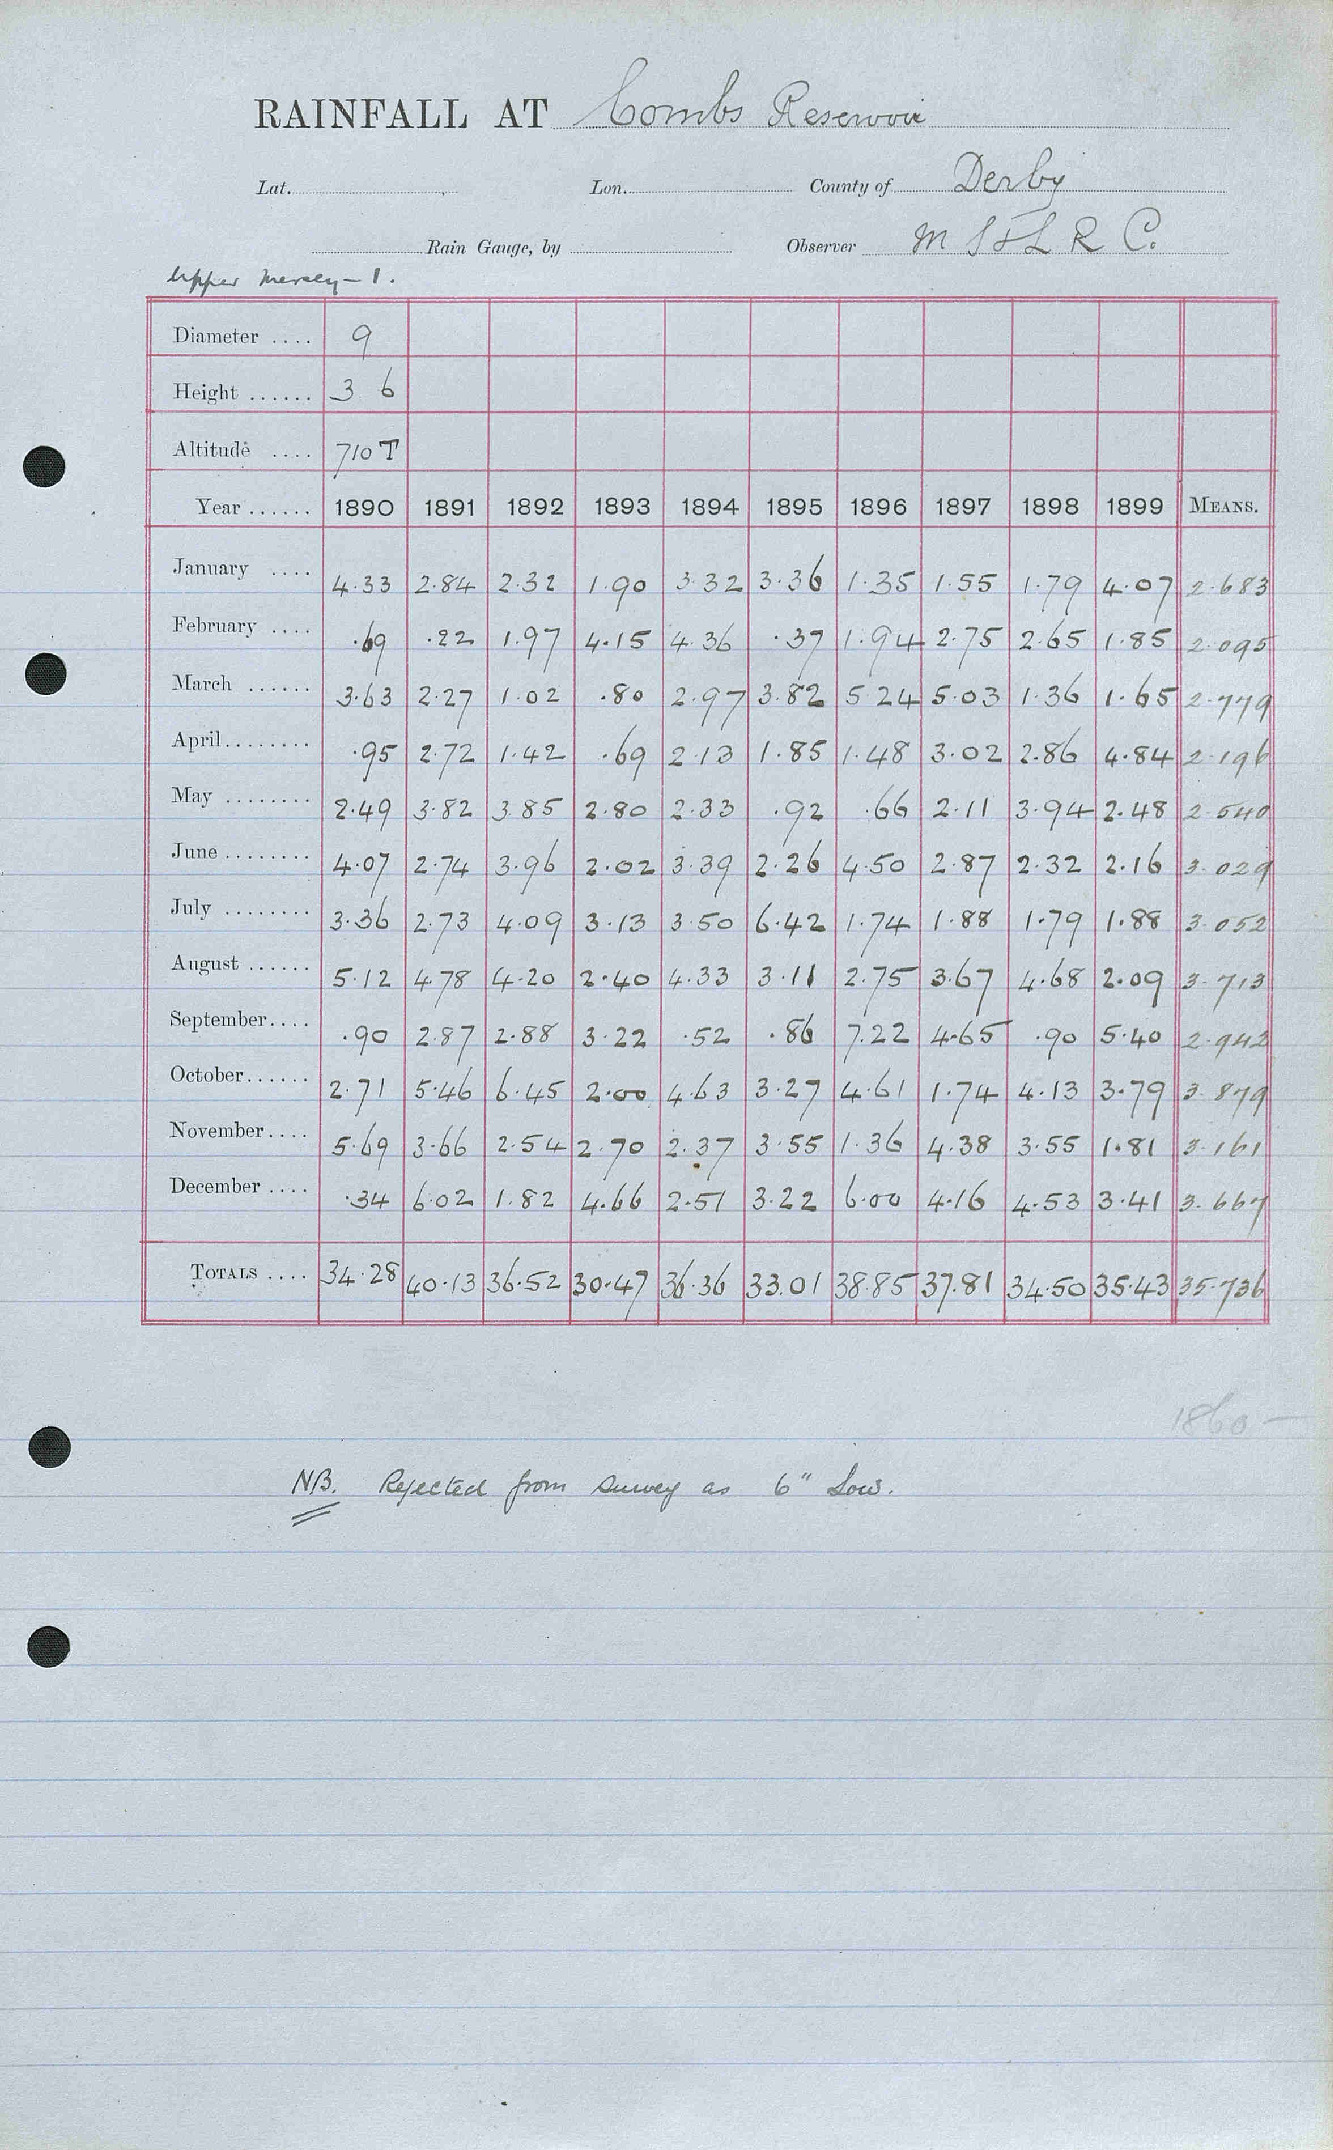 RAINFALL AT Combs Reservoir
Lat. Lon. County of Derby
Rain Gauge, by Observer M S & L R C.
Upper Mersey - 1.
Diameter .... 9
Height ...... 3 6
Altitude .... 710 T
Year ...... 1890 1891 1892 1893 1894 1895 1896 1897 1898 1899 MEANS.
January .... 4.33 2.84 2.32 1.90 3.32 3.36 1.35 1.55 1.79 4.07 2.683
February .... .69 .22 1.97 4.15 4.36 .37 1.94 2.75 2.65 1.85 2.095
March ...... 3.63 2.27 1.02 .80 2.97 3.82 5.24 5.03 1.36 1.65 2.779
April........ .95 2.72 1.42 .69 2.13 1.85 1.48 3.02 2.86 4.84 2.196
May ........ 2.49 3.82 3.85 2.80 2.33 .92 .66 2.11 3.94 2.48 2.540
June ........ 4.07 2.74 3.96 2.02 3.39 2.26 4.50 2.87 2.32 2.16 3.029
July ........ 3.36 2.73 4.09 3.13 3.50 6.42 1.74 1.88 1.79 1.88 3.052
August ...... 5.12 4.78 4.20 2.40 4.33 3.11 2.75 3.67 4.68 2.09 3.713
September.... .90 2.87 2.88 3.22 .52 .86 7.22 4.65 .90 5.40 2.942
October...... 2.71 5.46 6.45 2.00 4.63 3.27 4.61 1.74 4.13 3.79 3.879
November.... 5.69 3.66 2.54 2.70 2.37 3.55 1.36 4.38 3.55 1.81 3.161
December .... .34 6.02 1.82 4.66 2.51 3.22 6.00 4.16 4.53 3.41 3.667
TOTALS .... 34.28 40.13 36.52 30.47 36.36 33.01 38.85 37.81 34.50 35.43 35.736
1860 -
NB. Rejected from survey as 6" Low.